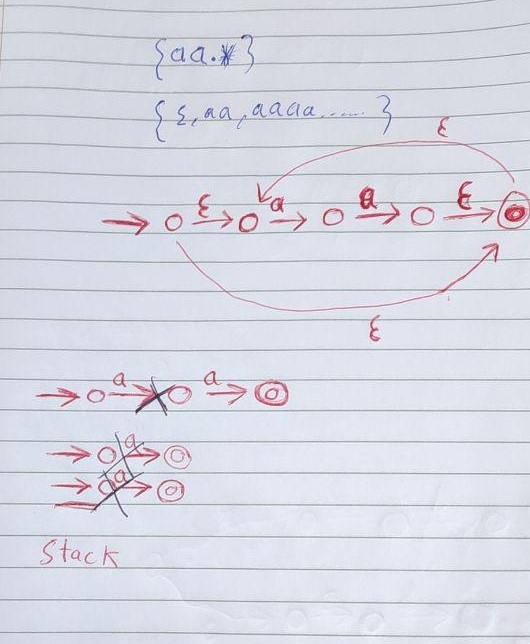 {aa.*}
{ε, aa, aaaa......}
ε
ε a a ε
ε
a a
a
a
Stack